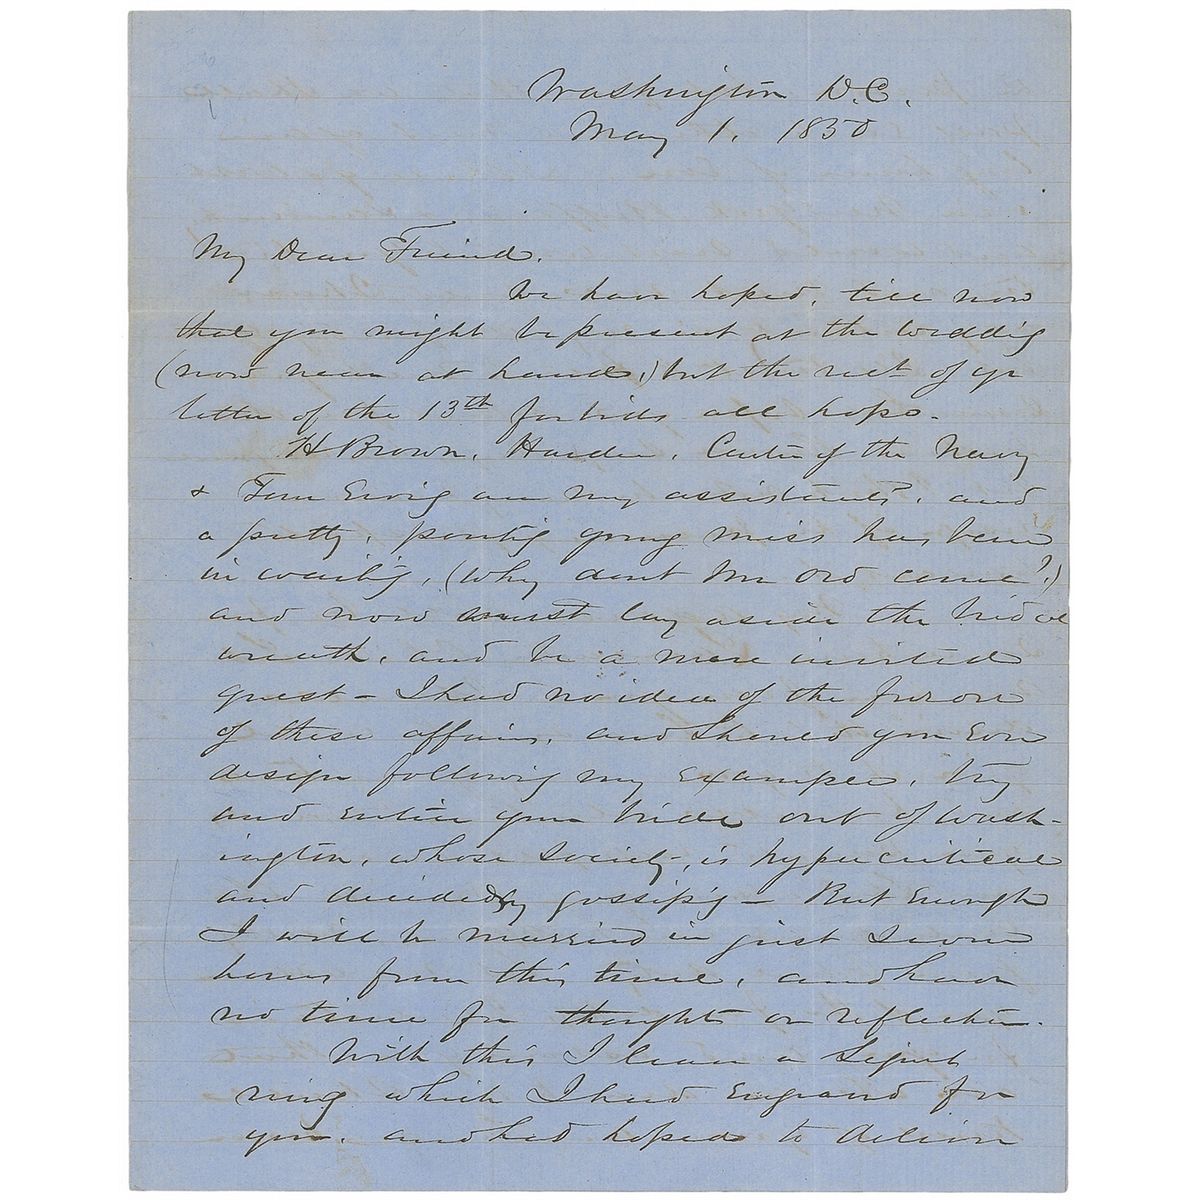 Washington D.C.
May 1. 1850
My Dear Friend.
We have hoped, till now
that you might be present at the wedding
(now near at hand,) but the rect of yr
letter of the 13th forbids all hope.
H Brown, Hardie, Carter of the Navy
& Tom Ewing are my assistants, and
a pretty, pouting young miss has been
in waiting, (Why dont Mr Ord come?)
and now must lay aside the bridal
wreath, and be a mere invited
guest - I had no idea of the furore
of these affairs, and should you Ever
design following my Example, try
and Entice your bride out of Wash-
ington, whose society, is hypercritical
and decidedly gossip'g - But Enough
I will be married in just seven
hours from this time, and have
no time for thought or reflection.
With this I leave a Signet
ring which I had Engraved for
you, and had hoped to deliver